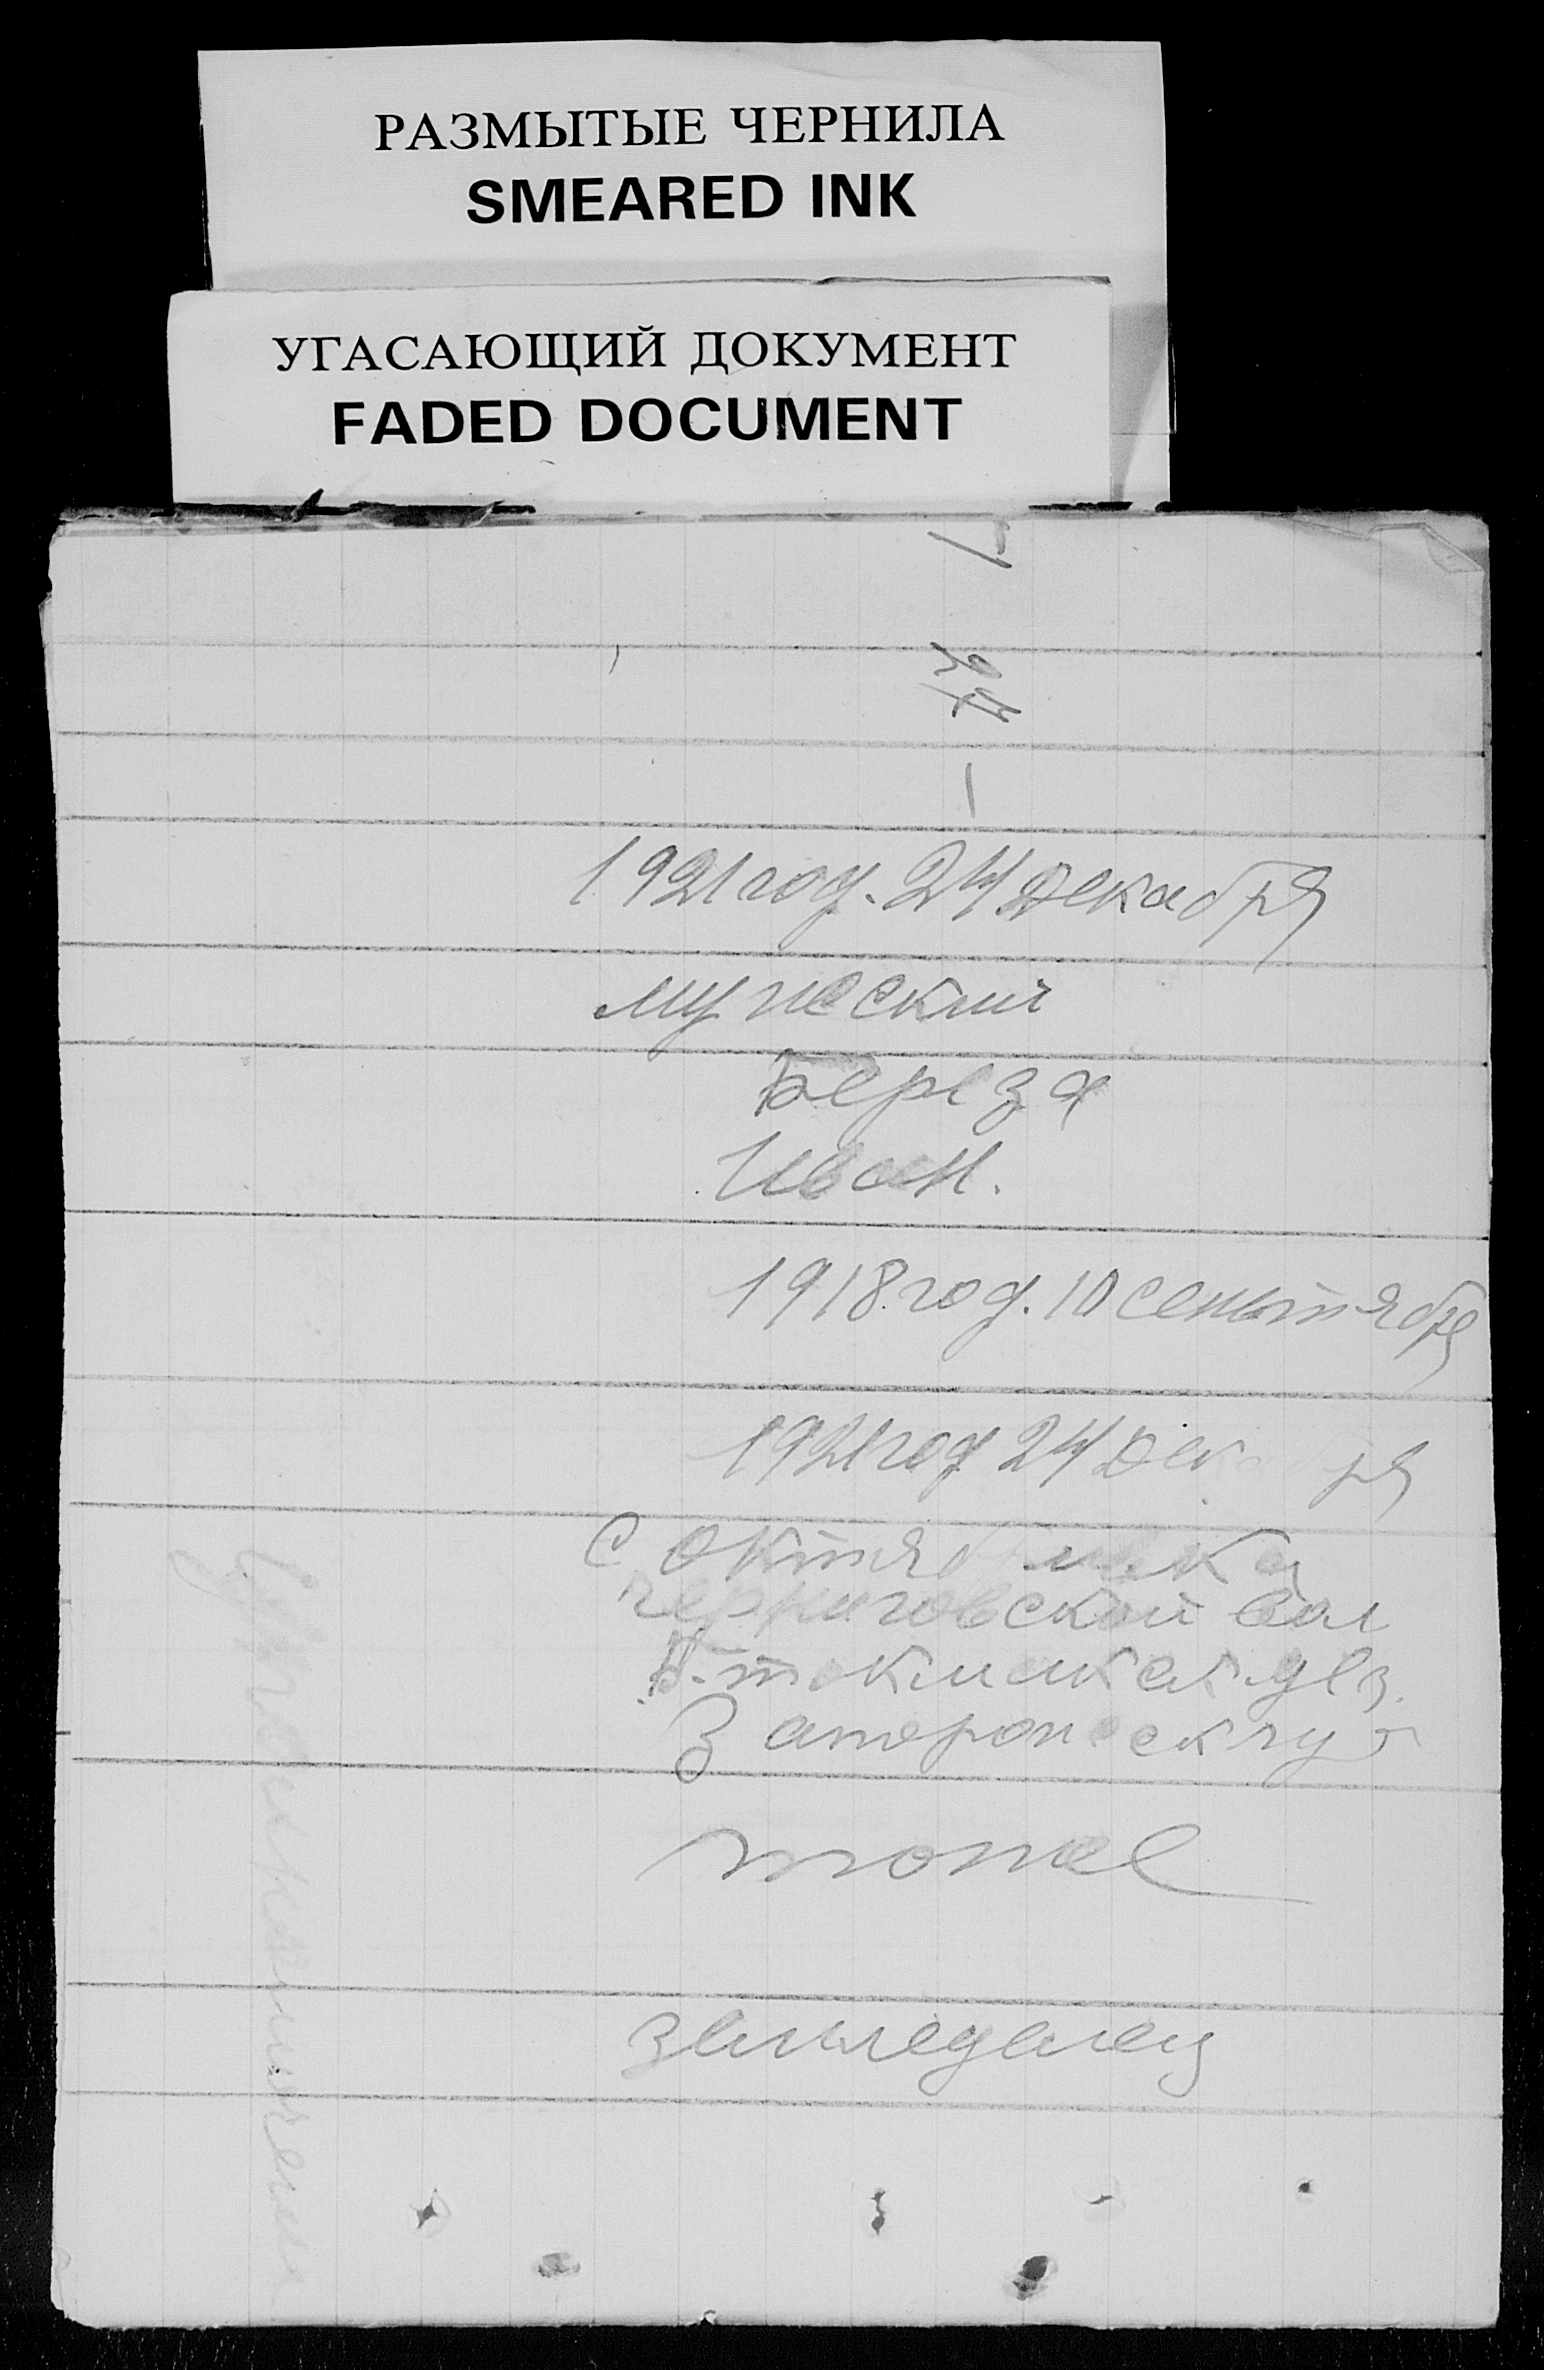 РАЗМЫТЫЕ ЧЕРНИЛА
SMEARED INK
УГАСАЮЩИЙ ДОКУМЕНТ
FADED DOCUMENT
1921 год. 24 Декабря
мужеский
Береза
Иван.
1918 год. 10 сентября
1921 год 24 Дек ря
С
черниговской вол
Б-токмакск уез.
тоже
земледелец